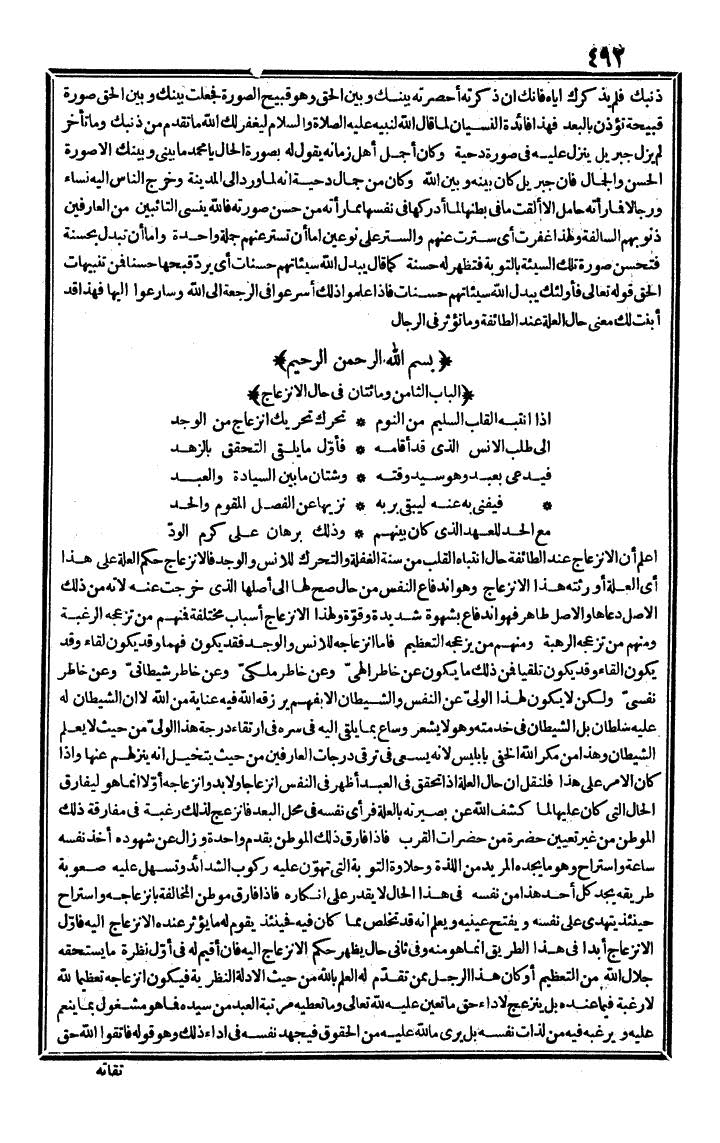 ٤٩٢
ذنبك فلم يذكرك اياه فانك ان ذكرته أحضرته بينك وبين الحق وهو قبيح الصورة فجعلت بينك وبين الحق صورة
قبيحة تؤذن بالبعد فهذا فائدة النسيان لما قال الله لنبيه عليه الصلاة والسلام ليغفر لك الله ما تقدم من ذنبك وما تأخر
لم يزل جبريل ينزل عليه فى صورة دحية وكان أجمل أهل زمانه يقول له بصورة الحال يا محمد ما بينى وبينك الا صورة
الحسن والجمال فان جبريل كان بينه وبين الله وكان من جمال دحية انه لما ورد الى المدينة وخرج الناس اليه نساء
ورجالا فما رأته حامل الا ألقت ما فى بطنها لما أدركها فى نفسها مما رأته من حسن صورته فالله ينسى التائبين من العارفين
ذنوبهم السالفة ولهذا غفرت أى سترت عنهم والستر على نوعين اما أن تستر عنهم جملة واحدة واما أن تبدل بحسنة
فتحسن صورة تلك السيئة بالتوبة فتظهر له حسنة كما قال يبدل الله سيئاتهم حسنات أى يردّ قبيحها حسنا فمن تنبيهات
الحق قوله تعالى فأولئك يبدل الله سيئاتهم حسنات فاذا علموا ذلك أسرعوا فى الرجعة الى الله وسارعوا اليها فهذا قد
أبنت لك معنى حال العلة عند الطائفة وما تؤثر فى الرجال
﴿بسم الله الرحمن الرحيم﴾
﴿الباب الثامن ومائتان فى حال الانزعاج﴾
اذا انتبه القلب السليم من النوم * تحرك تحريك انزعاج من الوجد
الى طلب الانس الذى قد أقامه * فأوّل ما يلقى التحقق بالزهد
فيدعى بعبد وهو سيد وقته * وشتان ما بين السيادة والعبد
* فيفنى به عنه ليبقى بربه * نزيها عن الفصل المقوم والحد
مع الحد للعهد الذى كان بينهم * وذلك برهان على كرم الودّ
اعلم أن الانزعاج عند الطائفة حال انتباه القلب من سنة الغفلة والتحرك للانس والوجد فالانزعاج حكم العلة على هذا
أى العلة أورثته هذا الانزعاج وهو اندفاع النفس من حال صح لها الى أصلها الذى خرجت عنه لانه من ذلك
الاصل دعاها والاصل طاهر فهو اندفاع بشهوة شديدة وقوّة ولهذا الانزعاج أسباب مختلفة فمنهم من تزعجه الرغبة
ومنهم من تزعجه الرهبة ومنهم من يزعجه التعظيم فاما انزعاجه للانس والوجد فقد يكون فهما وقد يكون لقاء وقد
يكون القاء وقد يكون تلقيا فمن ذلك ما يكون عن خاطر الهىّ وعن خاطر ملكىّ وعن خاطر شيطانىّ وعن خاطر
نفسىّ ولكن لا يكون لهذا الولىّ عن النفس والشيطان الا بفهم يرزقه الله فيه عناية من الله لا ان الشيطان له
عليه سلطان بل الشيطان فى خدمته وهو لا يشعر وساع بما يلقى اليه فى سره فى ارتقاء درجة هذا الولىّ من حيث لا يعلم
الشيطان وهذا من مكر الله الخفى بابليس لانه يسعى فى ترقى درجات العارفين من حيث يتخيل انه ينزلهم عنها واذا
كان الامر على هذا فلنقل ان حال العلة اذا تحقق فى العبد أظهر فى النفس انزعاجا ولا بد وانزعاجه أوّلا انما هو ليفارق
الحال التى كان عليها لما كشف الله عن بصيرته بالعلة فرأى نفسه فى محل البعد فانزعج لذلك رغبة فى مفارقة ذلك
الموطن من غير تعيين حضرة من حضرات القرب فاذا فارق ذلك الموطن بقدم واحدة وزال عن شهوده أخذ نفسه
ساعة واستراح وهو ما يجده المريد من اللذة وحلاوة التوبة التى تهوّن عليه ركوب الشدائد وتسهل عليه صعوبة
طريقه يجد كل أحد هذا من نفسه فى هذا الحال لا يقدر على انكاره فاذا فارق موطن المخالفة بانزعاجه واستراح
حينئذ يتهدى على نفسه ويفتح عينيه ويعلم انه قد تخلص مما كان فيه فحينئذ يقوم له ما يؤثر عنده الانزعاج اليه فأوّل
الانزعاج أبدا فى هذا الطريق انما هو منه وفى ثانى حال يظهر حكم الانزعاج اليه فان أقيم له فى أوّل نظرة ما يستحقه
جلال الله من التعظيم أو كان هذا الرجل ممن تقدّم له العلم بالله من حيث الادلة النظرية فيكون انزعاجه تعظيما لله
لا رغبة فيما عنده بل ينزعج لاداء حق ما تعين عليه لله تعالى وما تعطيه مرتبة العبد من سيده فما هو مشغول بما ينعم
عليه ويرغبه فيه من لذات نفسه بل يرى ما لله عليه من الحقوق فيجهد نفسه فى اداء ذلك وهو قوله فاتقوا الله حق
تقاته